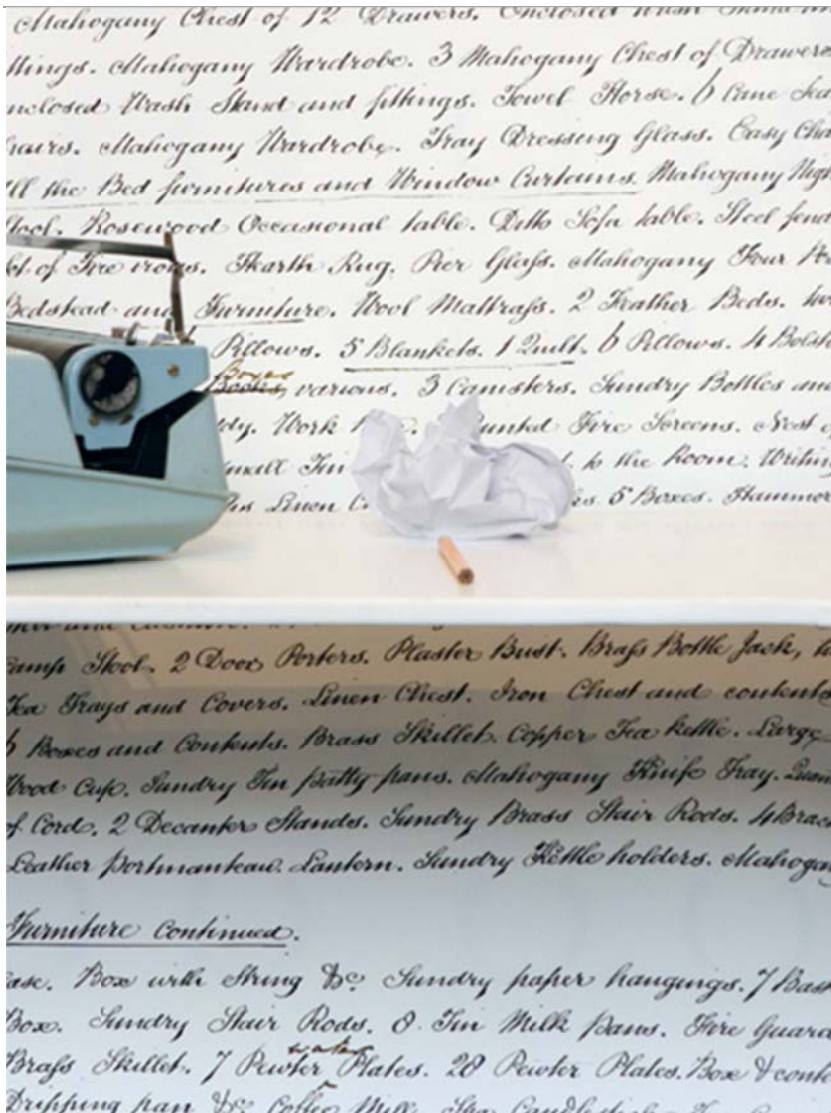 Mahogany Chest of 12 Drawers. Enclosed Wash Stand
ttings. Mahogany Wardrobe. 3 Mahogany Chest of Drawers
nclosed Wash Stand and fittings. Towel Horse. 6 Cane Sea
hairs. Mahogany Wardrobe. Tray Dressing Glass. Easy Cha
ll the Bed furnitures and Window Curtains. Mahogany Nigh
tool. Rosewood Occasional table. Ditto Sofa table. Steel fend
et of Fire irons. Hearth Rug. Pier Glass. Mahogany Four Po
Bedstead and Furniture. Wool Mattrass. 2 Feather Beds. tw
Pillows. 5 Blankets. 1 Quilt. 6 Pillows. 4 Bolst
Boxes
Books, various. 3 Canisters. Sundry Bottles and
Work unted Fire Screens. Nest o
mall Tin to the Room. Writing
Linen C 5 Boxes. Hammer
amp Stool. 2 Door Porters. Plaster Bust. Brass Bottle Jack,
Tea Trays and Covers. Linen Chest. Iron Chest and contents
6 Boxes and Contents. Brass Skillet. Copper Tea kettle. Large
Wood Cup. Sundry Tin patty pans. Mahogany Knife Tray. Quan
of Cord. 2 Decanter Stands. Sundry Brass Stair Rods. 4 Brac
Leather portmanteau. Lantern. Sundry Kettle holders. Mahogan
Furniture Continued.
ase. Box with String &c Sundry paper hangings. 7 Bask
Box. Sundry Stair Rods. 8 Tin Milk pans. Fire Guard
water
Brass Skillet. 7 Pewter Plates. 28 Pewter Plates. Box & conte
Dripping pan &c Coffee Mill.